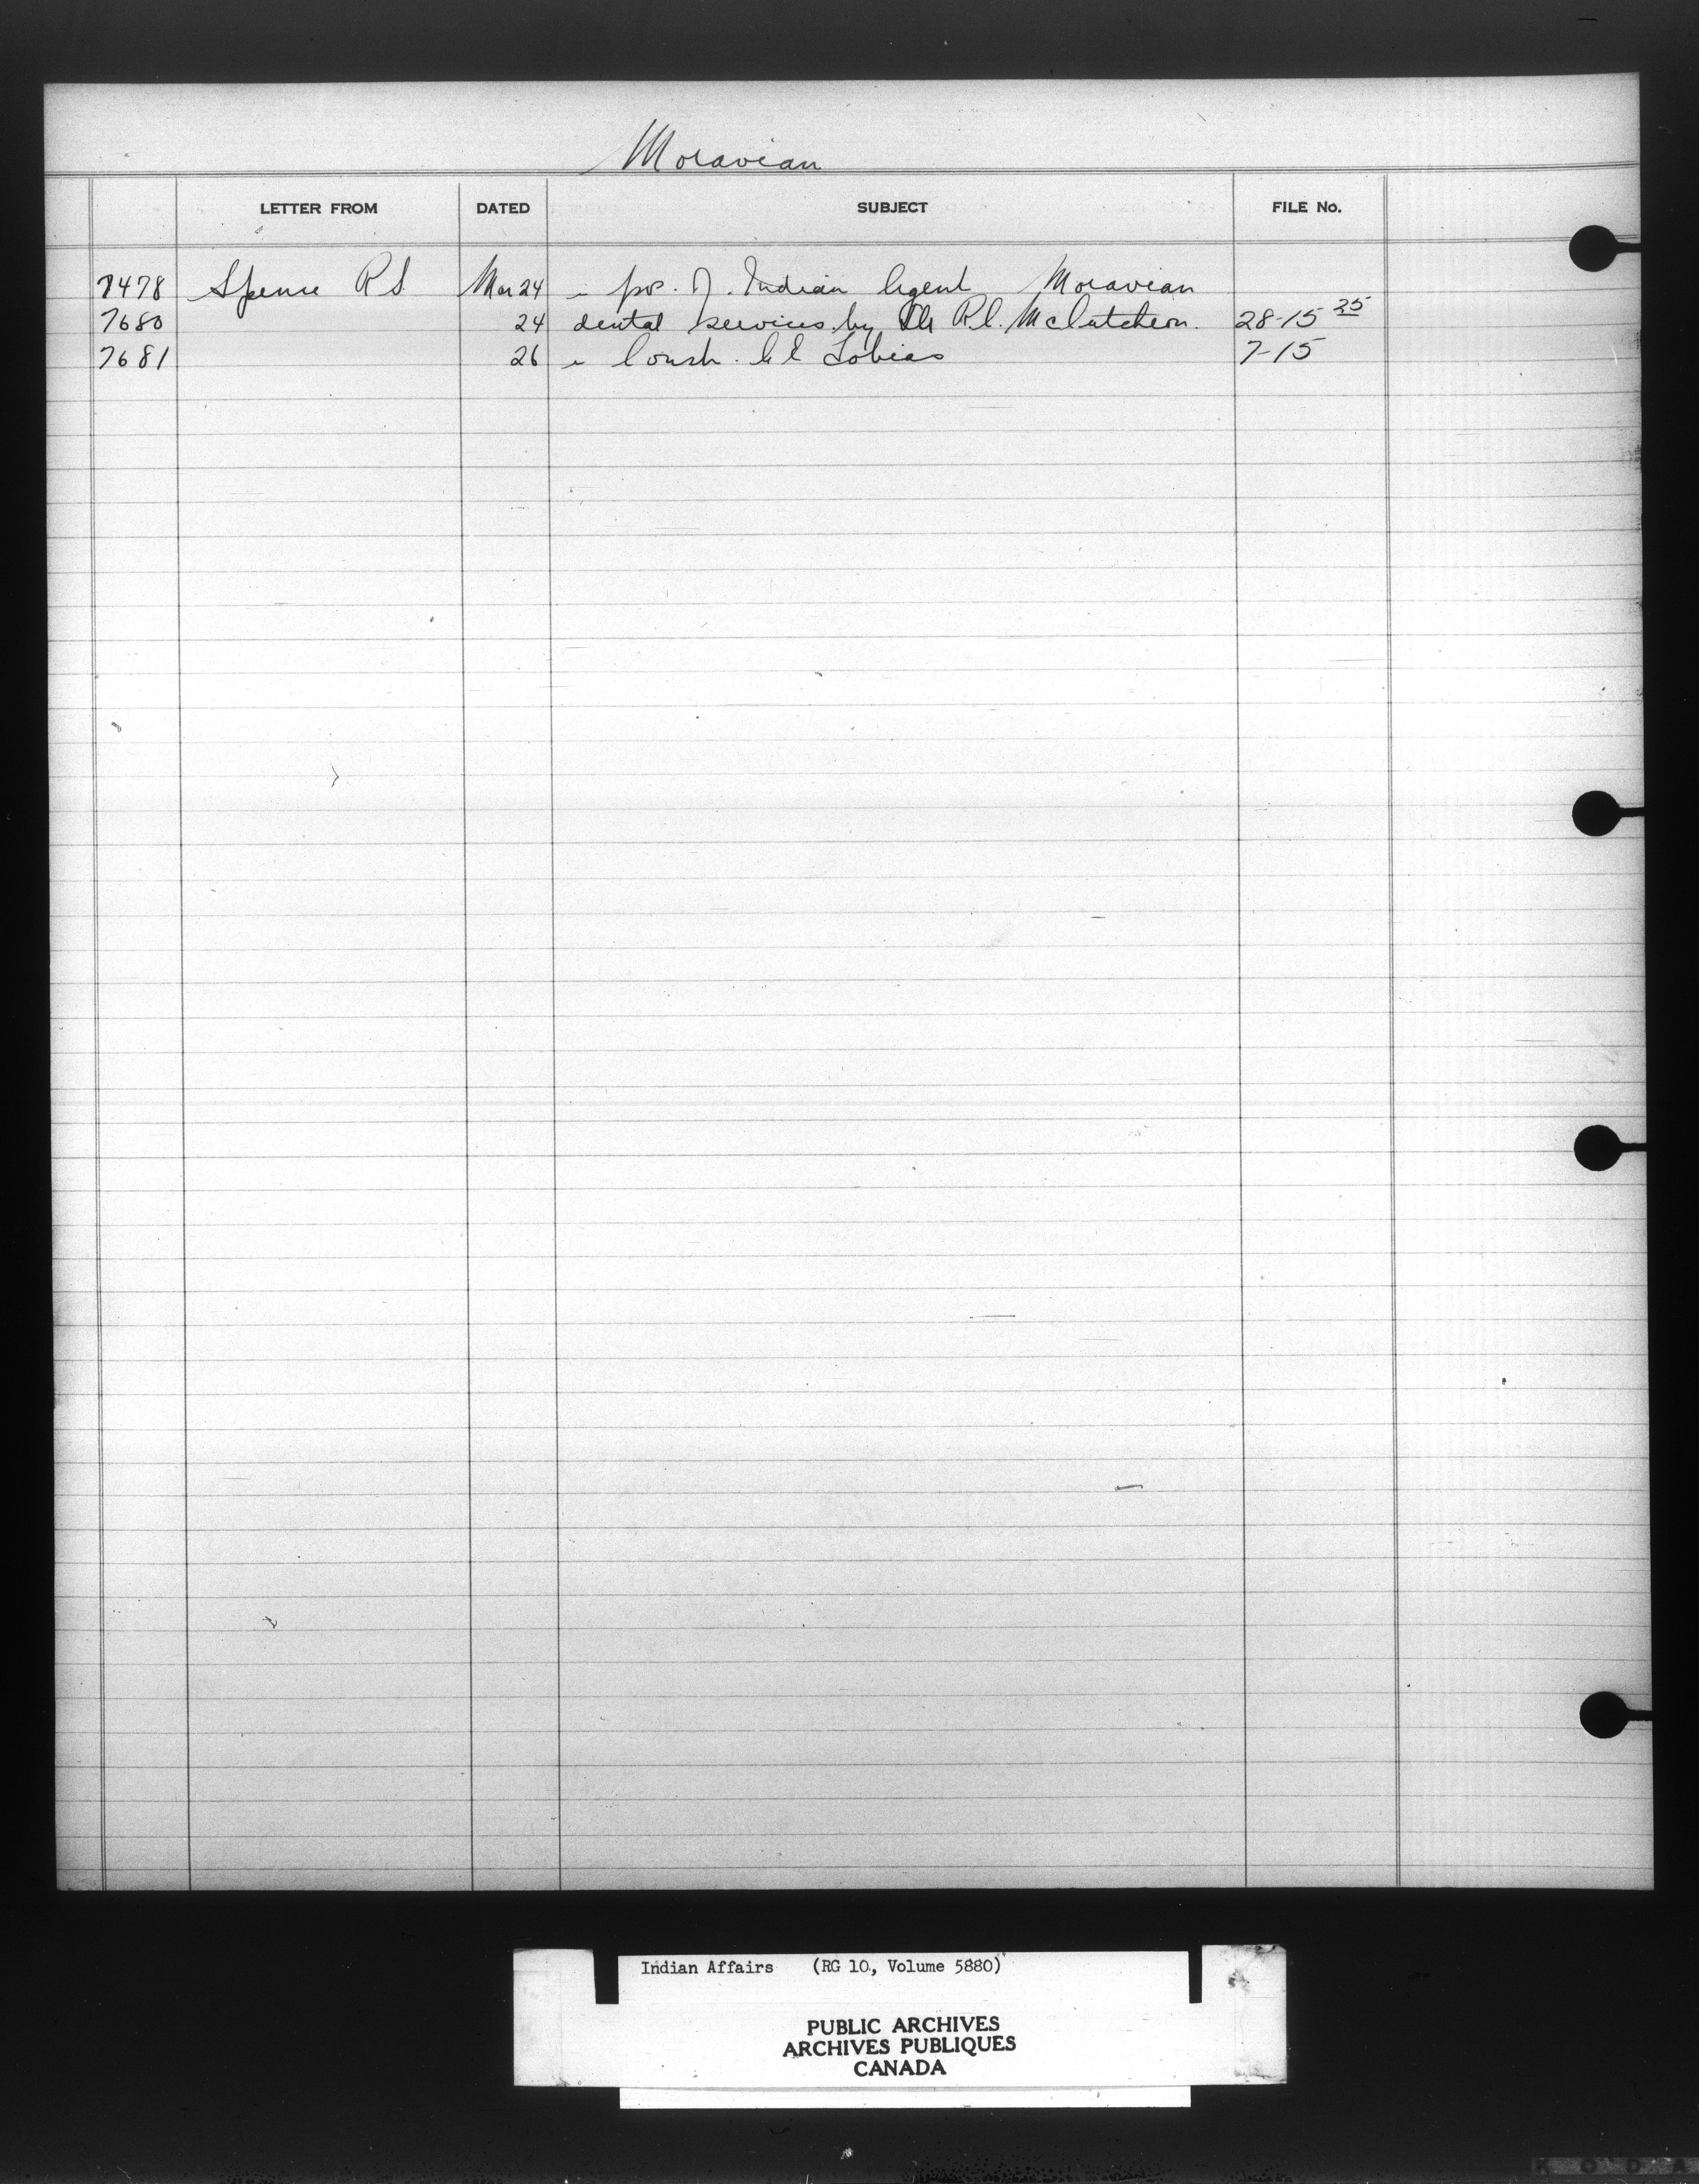 Moravian
LETTER FROM DATED SUBJECT FILE No.
7478 Spence R S Mar 24 pos. of Indian Agent Moravian
7680 24 dental services by Dr R.C. McCutcheon. 28-15 25
7681 26 Const. C E Tobias 7-15
Indian Affairs (RG 10, Volume 5880)
PUBLIC ARCHIVES
ARCHIVES PUBLIQUES
CANADA
KODA